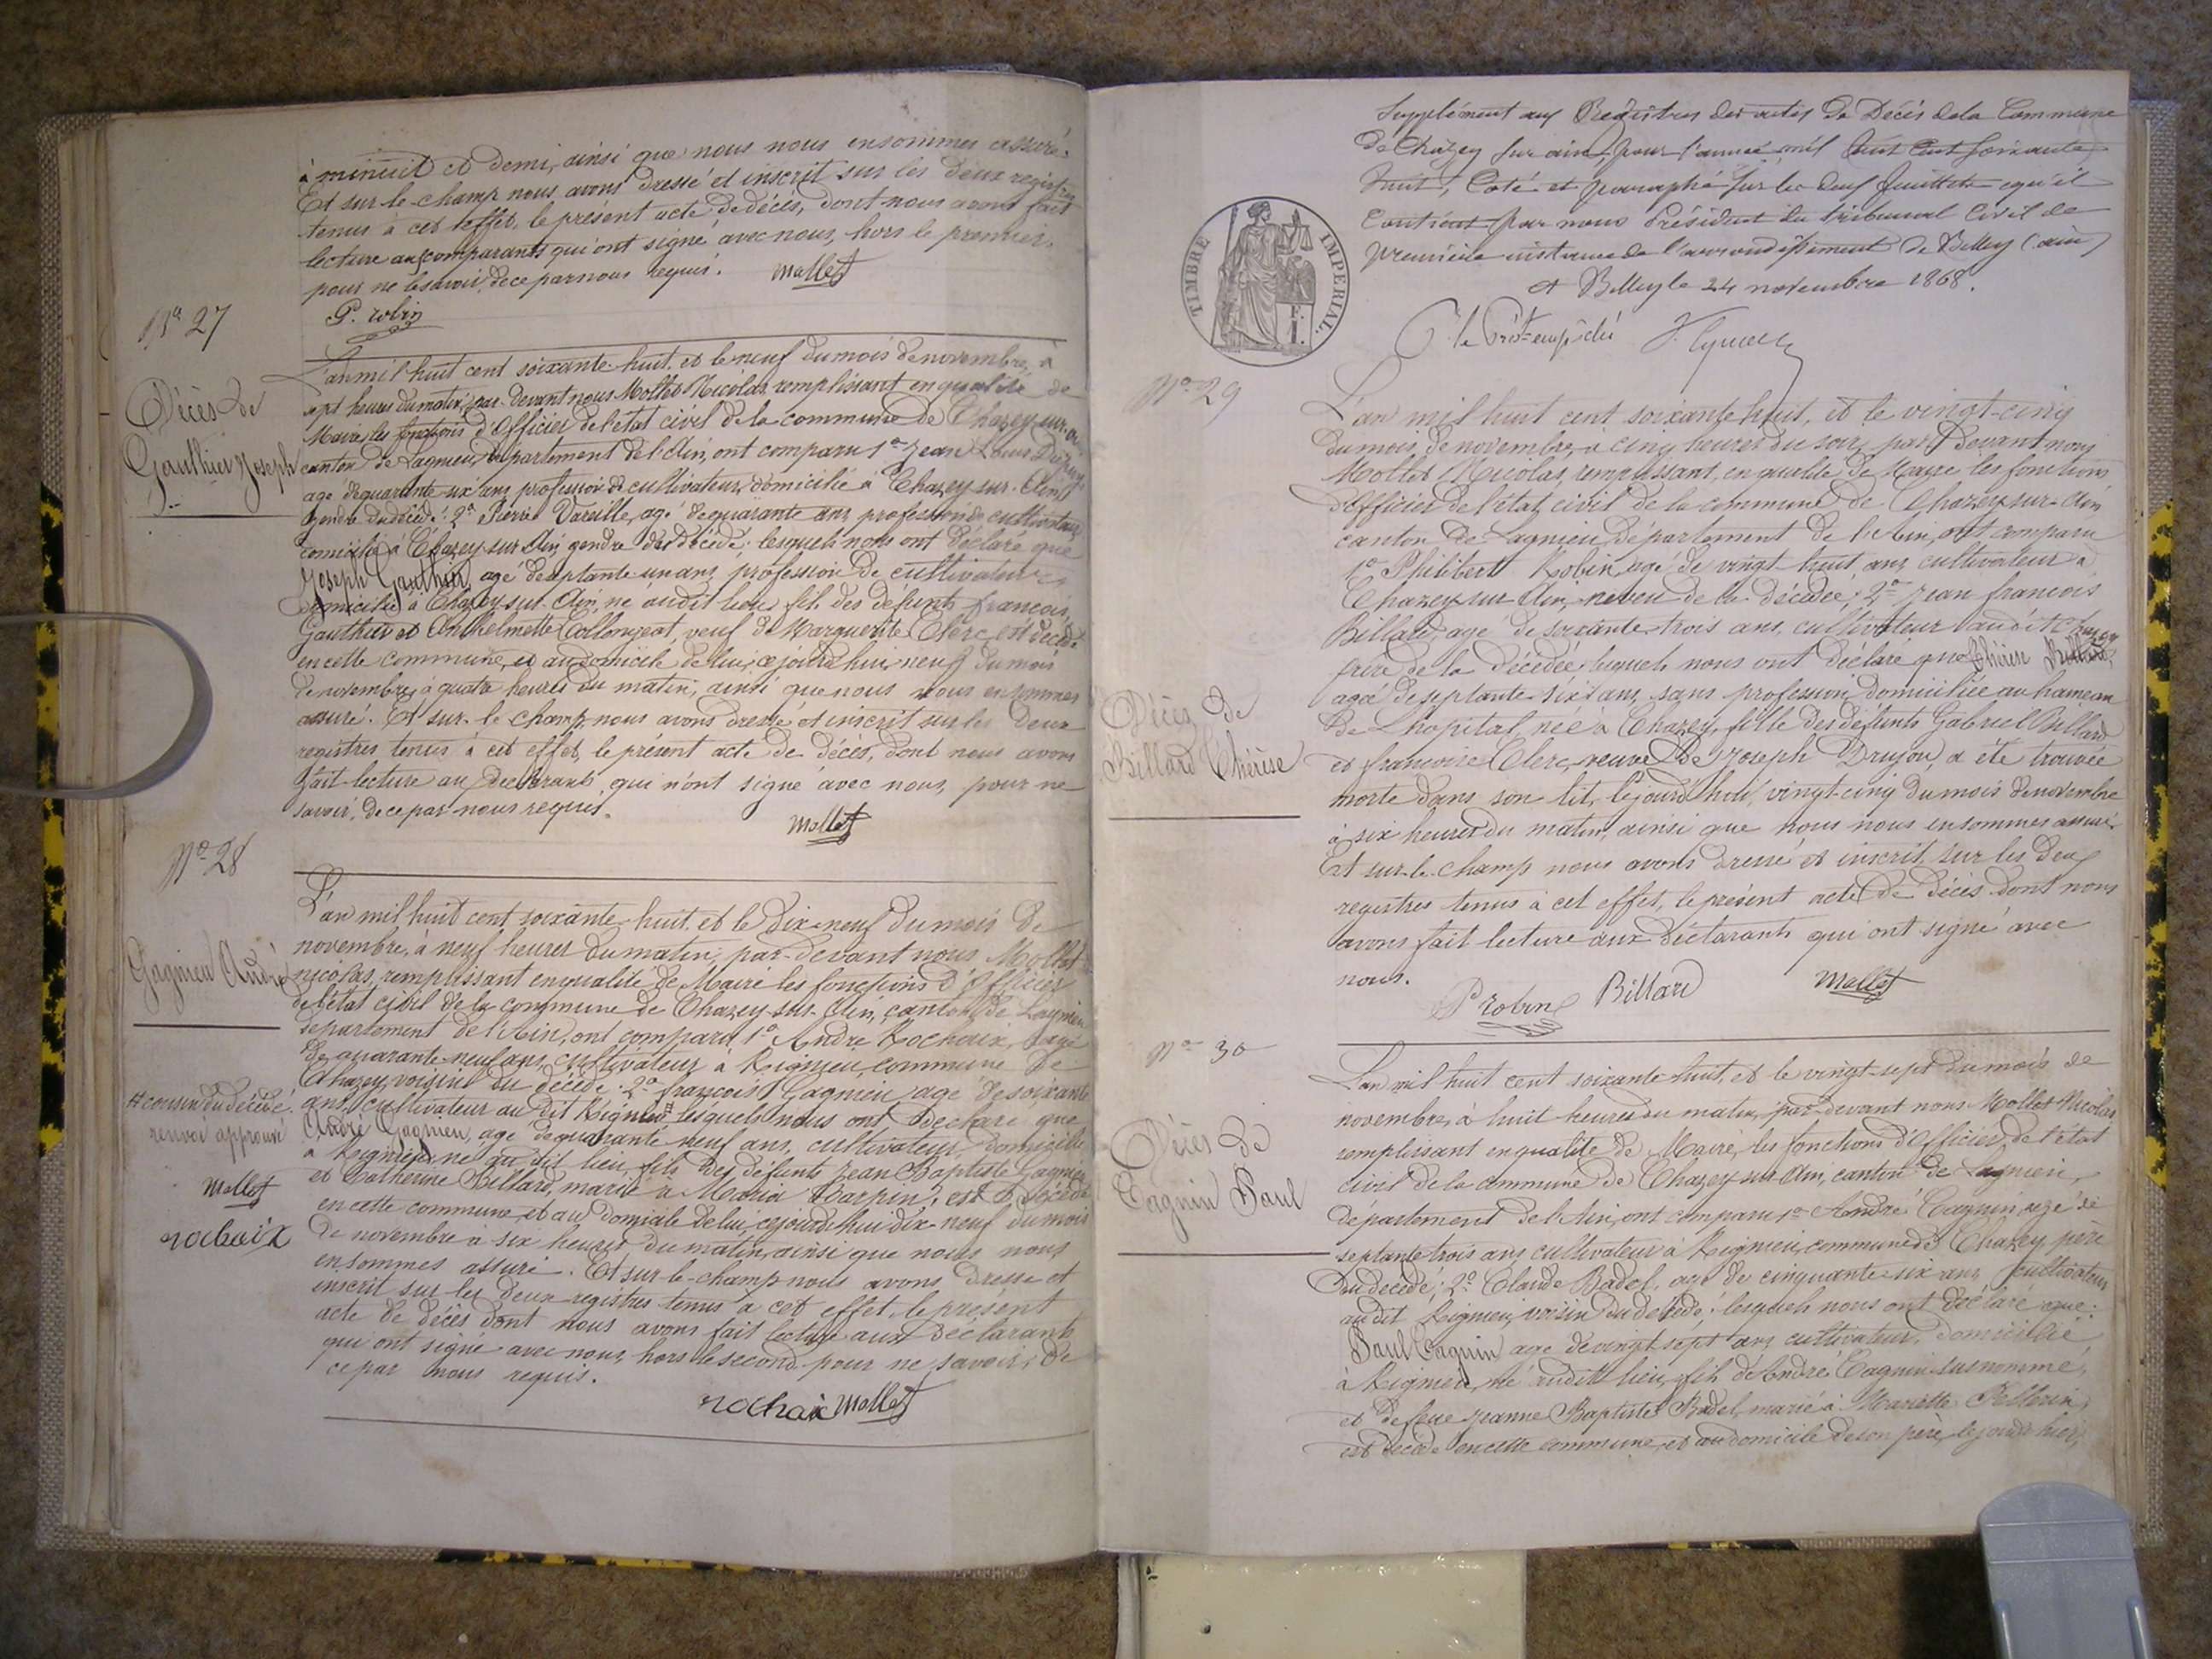 à minuit et demi, ainsi que nous nous en sommes assuré.
Et sur-le-champ nous avons dressé et inscrit sur les deux registres
tenus à cet effet, le présent acte de décès, dont nous avons fait
lecture aux comparants qui ont signé avec nous, hors le premier,
pour ne le savoir, de ce par nous requis. Mollet
P. robin
Nº 27
Décès de
Gauthier Joseph
L'an mil huit cent soixante-huit et le neuf du mois de novembre, à
sept heures du matin, par-devant nous Mollet Nicolas remplissant en qualité de
Maire, les fonctions d'Officier de l'état civil de la commune de Chazey-sur-Ain
canton de Lagnieu, département de l'Ain, ont comparu 1º Jean Louis
agé de quarante-six ans profession de cultivateur, domicilié à Chazey-sur-Ain
gendre du décédé; 2º Pierre Vareille, agé de quarante ans, profession de cultivateur
domicilié à Chazey-sur-Ain, gendre du décédé; lesquels nous ont déclaré que
Joseph Gauthier, agé de septante-un ans, profession de cultivateur
domicilié à Chazey-sur-Ain, né audit lieu, fils des défunts françois
Gauthier et Anthelmette Collongeat, veuf de Marguerite Clerc, est décédé
en cette commune, et au domicile de lui, cejourd'hui neuf du mois
de novembre, à quatre heures du matin, ainsi que nous nous en sommes
assuré. Et sur-le-champ nous avons dressé et inscrit sur les deux
registres tenus à cet effet, le présent acte de décès, dont nous avons
fait lecture aux déclarants qui n'ont signé avec nous, pour ne
savoir, de ce par nous requis.
Mollet
Nº 28
Gagnieu André
L'an mil huit cent soixante-huit et le dix-neuf du mois de
novembre, à neuf heures du matin, par-devant nous Mollet
nicolas, remplissant en qualité de Maire les fonctions d'Officier
de l'état civil de la commune de Chazey-sur-Ain, canton de Lagnieu
département de l'Ain, ont comparu 1º André Rochaix, agé
de quarante-neuf ans, cultivateur à Rignieu, commune de
Chazey, voisin du décédé; 2º françois Gagnieu agé de soixante
ans, cultivateur au dit Rignieu # lesquels nous ont déclaré que
André Gagnieu, agé de quarante neuf ans, cultivateur, domicilié
à Rignieu, né au dit lieu, fils des défunts Jean Baptiste Gagnieu
et Catherine Billard, marié à Maria Carpin, est décédé
en cette commune, et au domicile de lui, cejourd'hui dix-neuf du mois
de novembre à six heures du matin, ainsi que nous nous
en sommes assuré. Et sur-le-champ nous avons dressé et
inscrit sur les deux registres tenus à cet effet, le présent
acte de décès dont nous avons fait lecture aux déclarants
qui ont signé avec nous, hors le second pour ne savoir, de
ce par nous requis.
rochaix Mollet
# cousin du décédé.
renvoi approuvé
Mollet
rochaix
Supplément aux Registres des actes de Décès de la Commune
de Chazey sur ain, pour l'année mil huit cent soixante
huit, Coté et paraphé sur les deux feuillets qu'il
contient par nous Président du tribunal Civil de
première instance de l'arrondissement de Belley (ain)
A Belley le 24 novembre 1868.
P. le Prést empêché
TIMBRE IMPERIAL.
Nº 29
Décès de
Billard Thérèse
L'an mil huit cent soixante-huit, et le vingt-cinq
du mois de novembre, à cinq heures du soir, par-devant nous
Mollet Nicolas, remplissant, en qualité de Maire les fonctions
d'Officier de l'état civil de la commune de Chazey-sur-Ain
canton de Lagnieu, département de l'Ain, ont comparu
1º Philibert Robin, agé de vingt-huit ans, cultivateur à
Chazey-sur-Ain, neveu de la décédée; 2º Jean françois
Billard, agé de soixante-trois ans, cultivateur audit Chazey
frère de la décédée; lequels nous ont déclaré que Thérèse Billard,
agée de septante-six ans, sans profession, domiciliée au hameau
de L'hopital, née à Chazey, fille des défunts Gabriel Billard
et francoise Clerc, veuve de Joseph Drujon, a été trouvée
morte dans son lit, cejourd'hui, vingt-cinq du mois de novembre
à six heures du matin, ainsi que nous nous en sommes assuré.
Et sur-le-champ nous avons dressé et inscrit sur les deux
registres tenus à cet effet, le présent acte de décès dont nous
avons fait lecture aux déclarants qui ont signé avec
nous.
P robin Billard Mollet
Nº 30
Décès de
Cagnin Paul
L'an mil huit cent soixante-huit, et le vingt-sept du mois de
novembre, à huit heures du matin, par-devant nous Mollet Nicolas
remplissant en qualité de Maire, les fonctions d'Officier de l'état
civil de la commune de Chazey-sur-Ain, canton de Lagnieu,
département de l'Ain, ont comparu 1º André Cagnin, agé de
septante trois ans, cultivateur à Rignieu, commune de Chazey, père
du décédé; 2º Claude Badel, agé de cinquante-six ans, cultivateur
audit Rignieu, voisin du décédé; lesquels nous ont déclaré que:
Paul Cagnin agé de vingt-sept ans, cultivateur, domicilié
à Rignieu, né audit lieu, fils de André Cagnin susnommé,
et de feue Jeanne Baptiste Badel, marié à Mariette Pellerin,
est décédé en cette commune, et au domicile de son père, le jour d'hier,